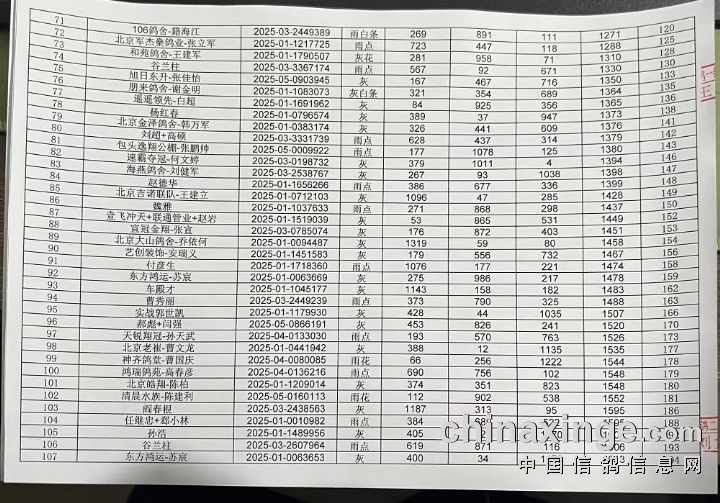 71
72 106鸽舍-籍海江 2025-03-2449389 雨白条 269 891 111 1271 120
73 北京军杰燊鸽业-张立军 2025-01-1217725 雨点 723 447 118 1288 125
74 和苑鸽舍-王建军 2025-01-1790507 灰花 281 958 71 1310 130
75 谷兰柱 2025-03-3367174 雨点 567 92 671 1330 130
76 旭日东升-张佳怡 2025-05-0903945 灰 167 467 716 1350 133
77 朋来鸽舍-谢金明 2025-01-1083073 灰白条 321 354 689 1364 135
78 遥遥领先-白超 2025-01-1691962 灰 84 925 356 1365 136
79 杨红春 2025-01-0796574 灰 389 37 947 1373 138
80 北京金泽鸽舍-韩万军 2025-01-0383174 灰 326 441 609 1376 141
81 刘超+高硕 2025-03-3331739 雨点 628 437 314 1379 142
82 包头逸翔公棚-张鹏帅 2025-05-0009922 雨点 177 1078 125 1380 143
83 速霸夺冠-何文婷 2025-03-0198732 灰 379 1011 4 1394 146
84 海燕鸽舍-刘健军 2025-03-2538767 灰 267 93 1038 1398 148
85 赵德华 2025-01-1656266 雨点 386 677 336 1399 148
86 北京吉诺联队-王建立 2025-01-0712103 灰 1096 47 285 1428 149
87 魏雅 2025-01-1037633 雨点 271 868 298 1437 150
88 壹飞冲天+联通管业+赵岩 2025-01-1519039 灰 53 865 531 1449 152
89 宣冠金翔-张宣 2025-03-0785074 灰 176 872 403 1451 153
90 北京大山鸽舍-乔依何 2025-01-0094487 灰 1319 59 80 1458 154
91 艺创装饰-安瑞义 2025-01-1451583 灰 179 556 732 1467 156
92 付彦生 2025-01-1718360 雨点 1076 177 221 1474 158
93 东方鸿运-苏宸 2025-01-0063669 灰 275 986 217 1478 159
94 车殿才 2025-01-1045177 灰 1143 158 182 1483 162
95 曹秀丽 2025-03-2449239 雨点 373 790 325 1488 163
96 实战郭世凯 2025-01-1179930 灰 428 44 1035 1507 166
97 郝彪+闫强 2025-05-0866191 灰 453 826 241 1520 170
98 天锐翔冠-孙天武 2025-04-0133030 雨点 193 570 763 1526 173
99 北京老崔-曹文龙 2025-01-0441942 灰 388 12 1135 1535 177
100 神齐鸽堂-曹国庆 2025-04-0080085 雨花 66 256 1222 1544 178
101 鸿瑞鸽苑-高春彦 2025-04-0136216 雨点 690 756 102 1548 178
102 北京皓翔-陈柏 2025-01-1209014 灰 374 351 823 1548 180
103 清晨水族-陈建利 2025-05-0160113 雨花 112 902 538 1552 181
104 阎春根 2025-03-2438563 灰 1187 313 95 1595 186
105 任继忠+郄小林 2025-01-0010982 雨点 384
106 孙浩 2025-01-1489956 灰 405
107 谷兰柱 2025-03-2607964 雨点 619 871 116 193
东方鸿运-苏宸 2025-01-0063653 灰 400 34
chinaxinge.com
中国信鸽信息网